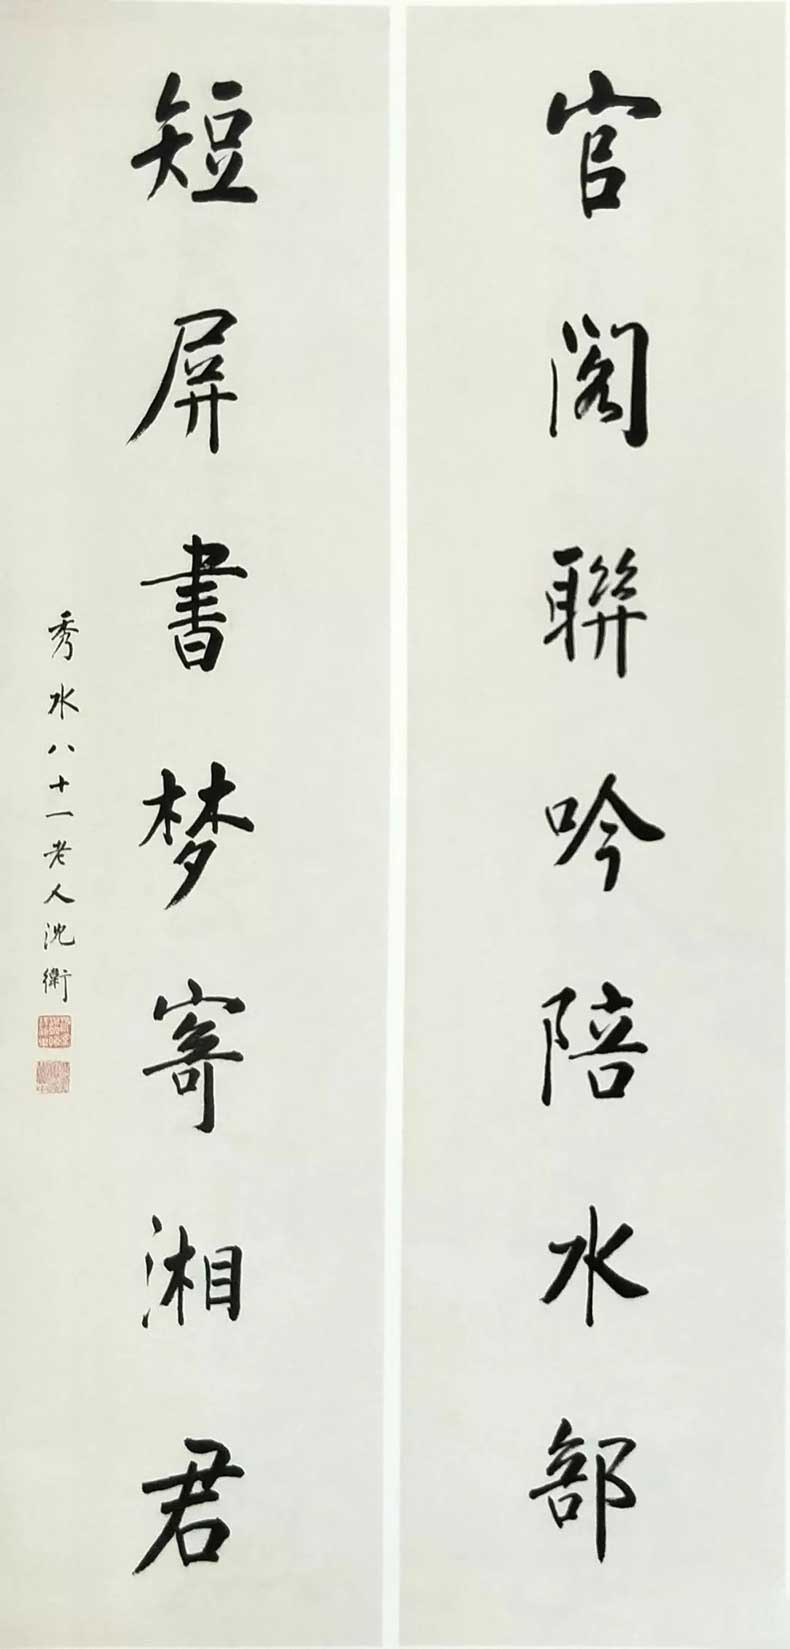 官阁聯吟陪水部
短屏書梦寄湘君
秀水八十一老人沈衛